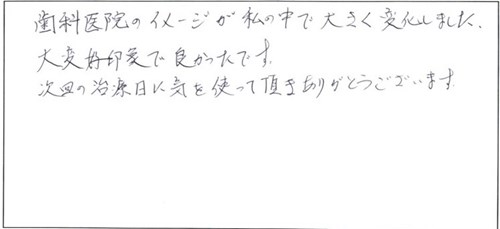 歯科医院のイメージが私の中で大きく変化しました、
大変好印象で良かったです。
次回の治療日に気を使って頂きありがとうございます。